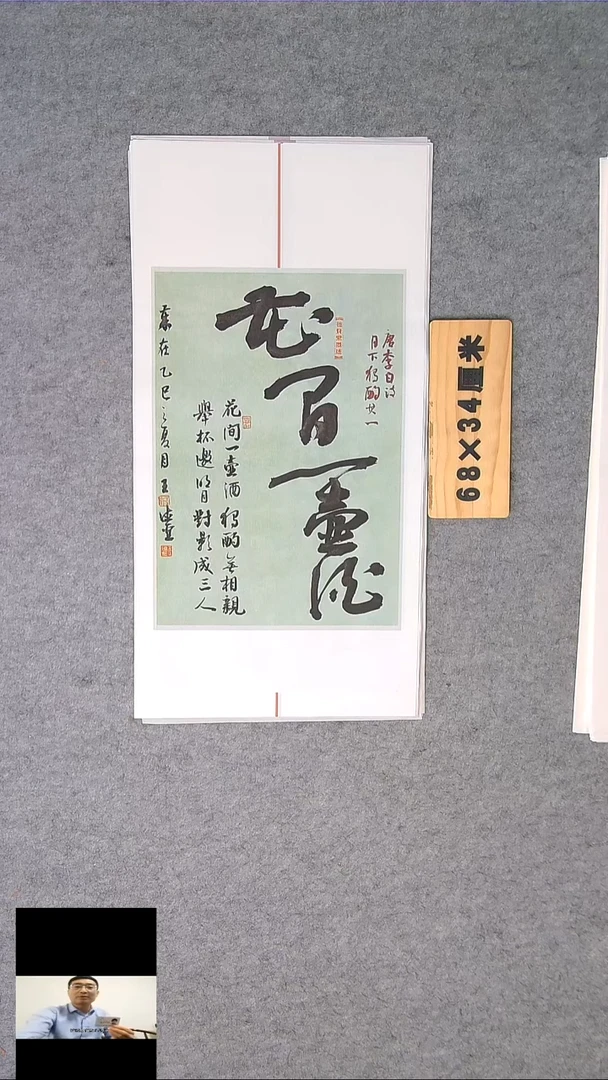 花間一壺酒
唐李白詩
月下獨酌其一
花間一壺酒獨酌無相親
舉杯邀明月對影成三人
歲在乙巳之夏月王
68×34厘米